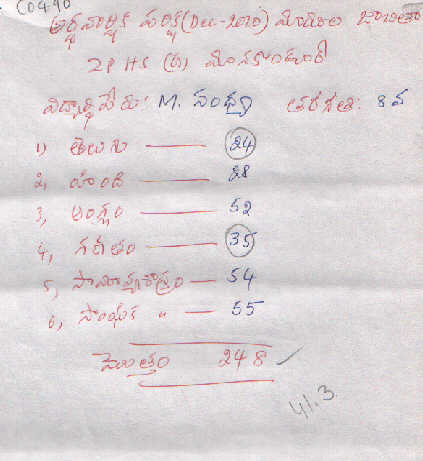 C0490
అర్ధవార్షిక పరీక్ష (Dec-2010) మార్కుల జాబితా
ZPHS (G) మానకొండూర్
విద్యార్థి పేరు: M. సంధ్య తరగతి: 8వ
1) తెలుగు — 24
2, హింది — 28
3, ఆంగ్లం — 52
4, గణితం — 35
5, సామాన్యశాస్త్రం — 54
6, సాంఘిక " — 55
మొత్తం 248 ✓
41.3